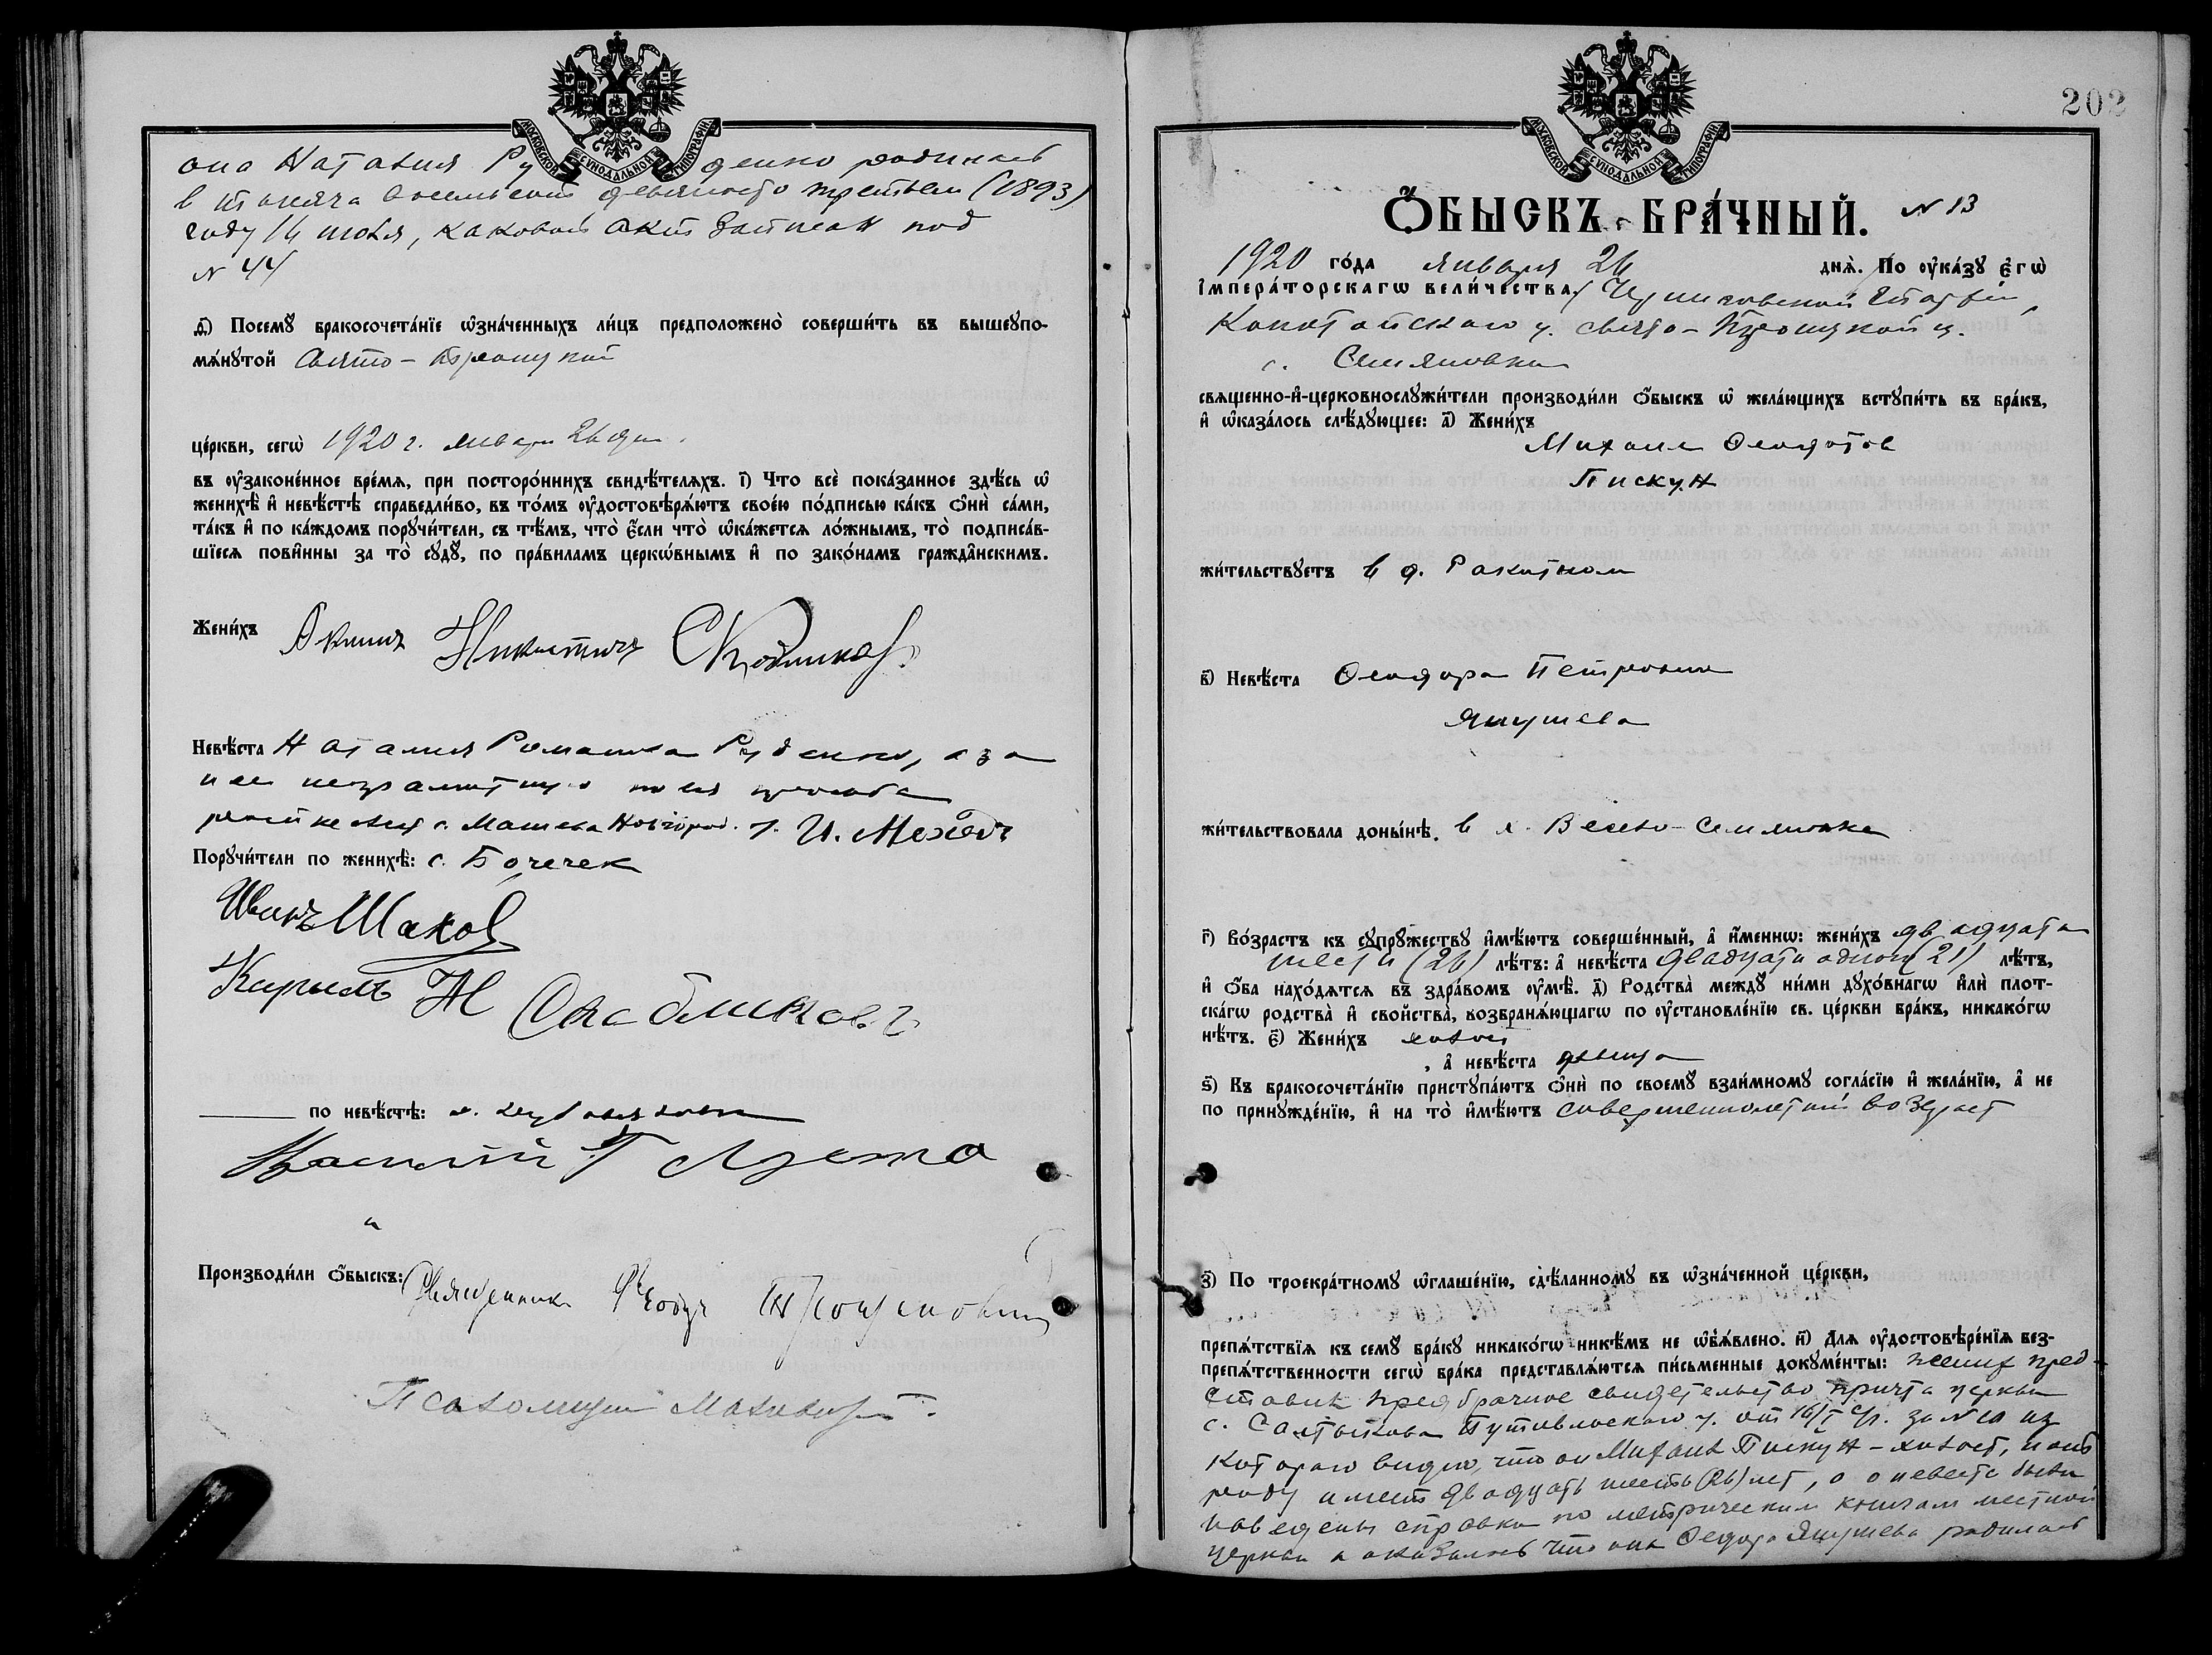 МОСКОВСКОЙ СѴНОДАЛЬНОЙ ТИПОГРАФІИ.
она Наталия Руденко родилась
в тысяча восемьсот девяносто третьем (1893)
году 14 июля, каковой акт записан под
N 44
д҃) Посемꙋ бракосочета́нїе ѡ҆зна́ченныхъ ли́цъ предположено̀ соверши́ть въ вышеꙋпо-
мѧ́нꙋтой Свято-Троицкой
це́ркви, сегѡ̀ 1920 г. января 26 дня.
въ ᲂу҆зако́ненное вре́мѧ, при посторо́ннихъ свидѣ́телѧхъ. і҃) Что всѐ пока́занное здѣ́сь ѡ҆
женихѣ̀ и҆ невѣ́стѣ справедли́во, въ то́мъ ᲂу҆достовѣрѧ́ютъ свое́ю по́дписью ка́къ ѻ҆нѝ са́ми,
та́къ и҆ по ка́ждомъ порꙋчи́тели, съ тѣ́мъ, что̀ є҆́сли что̀ ѡ҆ка́жется ло́жнымъ, то̀ подписа́в-
шїесѧ пови́нны за то̀ сꙋдꙋ̀, по пра́виламъ церко́внымъ и҆ по зако́намъ гражда́нскимъ.
Жени́хъ Никитичъ
Невѣ́ста Наталия Романова Руденко, а за
нее неграмотную по ея просьбе
с. Машева Новгород. у. И.
Порꙋчи́тели по женихѣ̀: с. Бочечек
Иванъ Шахов
Кирилъ Н Скобликовъ
по невѣ́стѣ:
Василий Г
Производи́ли ѻ҆́быскъ: Священник Феодоръ
Псаломщик
202
МОСКОВСКОЙ СѴНОДАЛЬНОЙ ТИПОГРАФІИ.
Ѻ҆́БЫСКЪ БРА́ЧНЫЙ. N 13
1920 го́да января 26 днѧ̀. По ᲂу҆ка́зꙋ є҆гѡ̀
і҆мпера́торскагѡ вели́чества, Черниговской Епархии,
Конотопского у. Свято-Троицкой ц.
с. Семяновки
свѧще́нно-и҆-церковнослꙋжи́тели производи́ли ѻ҆́быскъ ѡ҆ жела́ющихъ встꙋпи́ть въ бра́къ,
и҆ ѡ҆каза́лось слѣ́дꙋющее: а҃) Жени́хъ
Михаил Феодотов
Пискун
жи́тельствꙋетъ в д. Ракитном
в҃) Невѣ́ста Феодора Петровна
Якушева
жи́тельствовала доны́нѣ. в
г҃) Во́зрастъ къ сꙋпрꙋ́жествꙋ и҆мѣ́ютъ соверше́нный, а҆ и҆́меннѡ: жени́хъ двадцати
шести (26) лѣ́тъ: а҆ невѣ́ста двадцати одного (21) лѣ́тъ,
и҆ ѻ҆́ба нахо́дѧтсѧ въ здра́вомъ ᲂу҆мѣ̀. д҃) Родства̀ междꙋ̀ ни́ми дꙋхо́внагѡ и҆лѝ плот-
ска́гѡ родства̀ и҆ сво́йства̀, возбранѧ́ющагѡ по ᲂу҆становле́нїю св. це́ркви бра́къ, никако́гѡ
нѣ́тъ. є҃) Жени́хъ холост
, а҆ невѣ́ста девица
ѕ҃) Къ бракосочета́нїю пристꙋпа́ютъ ѻ҆нѝ по своемꙋ̀ взаи́мномꙋ согла́сїю и҆ жела́нїю, а҆ не
по принꙋжде́нїю, и҆ на то̀ и҆мѣ́ютъ совершеннолетний возраст
з҃) По троекра́тномꙋ ѡ҆глаше́нїю, сдѣ́ланномꙋ въ ѡ҆зна́ченной це́ркви,
препѧ́тствїѧ къ семꙋ̀ бра́кꙋ никако́гѡ никѣ́мъ не ѡ҆б̾ѧ́влено. и҃) Длѧ ᲂу҆достовѣре́нїѧ без-
препѧ́тственности сегѡ̀ бра́ка представлѧ́ютсѧ пи́сьменные докꙋме́нты: жених пред-
ставил предбрачное свидетельство причта церкви
с. Салтыкова Путивльского у. от 16/I с/г. за N 10 из
которого видно, что он Михаил Пискун - холост,
роду имеет двадцать шесть (26) лет, а о невесте были
наведены справки по метрическим книгам местной
церкви и оказалось что она Феодора Якушева родилась